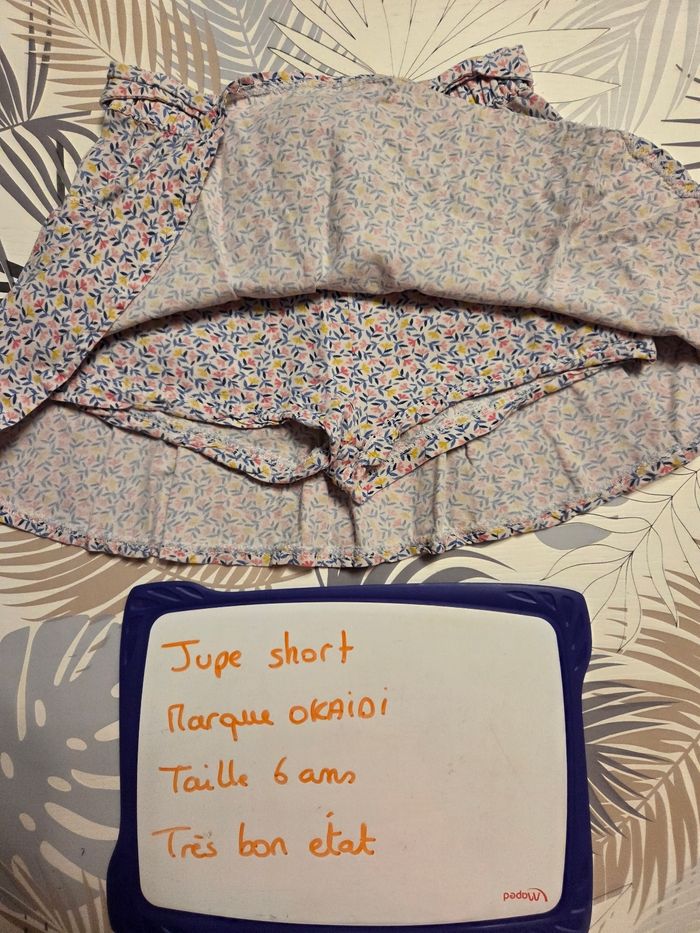 Jupe short
Marque OKAIDI
Taille 6 ans
Très bon état
Maped